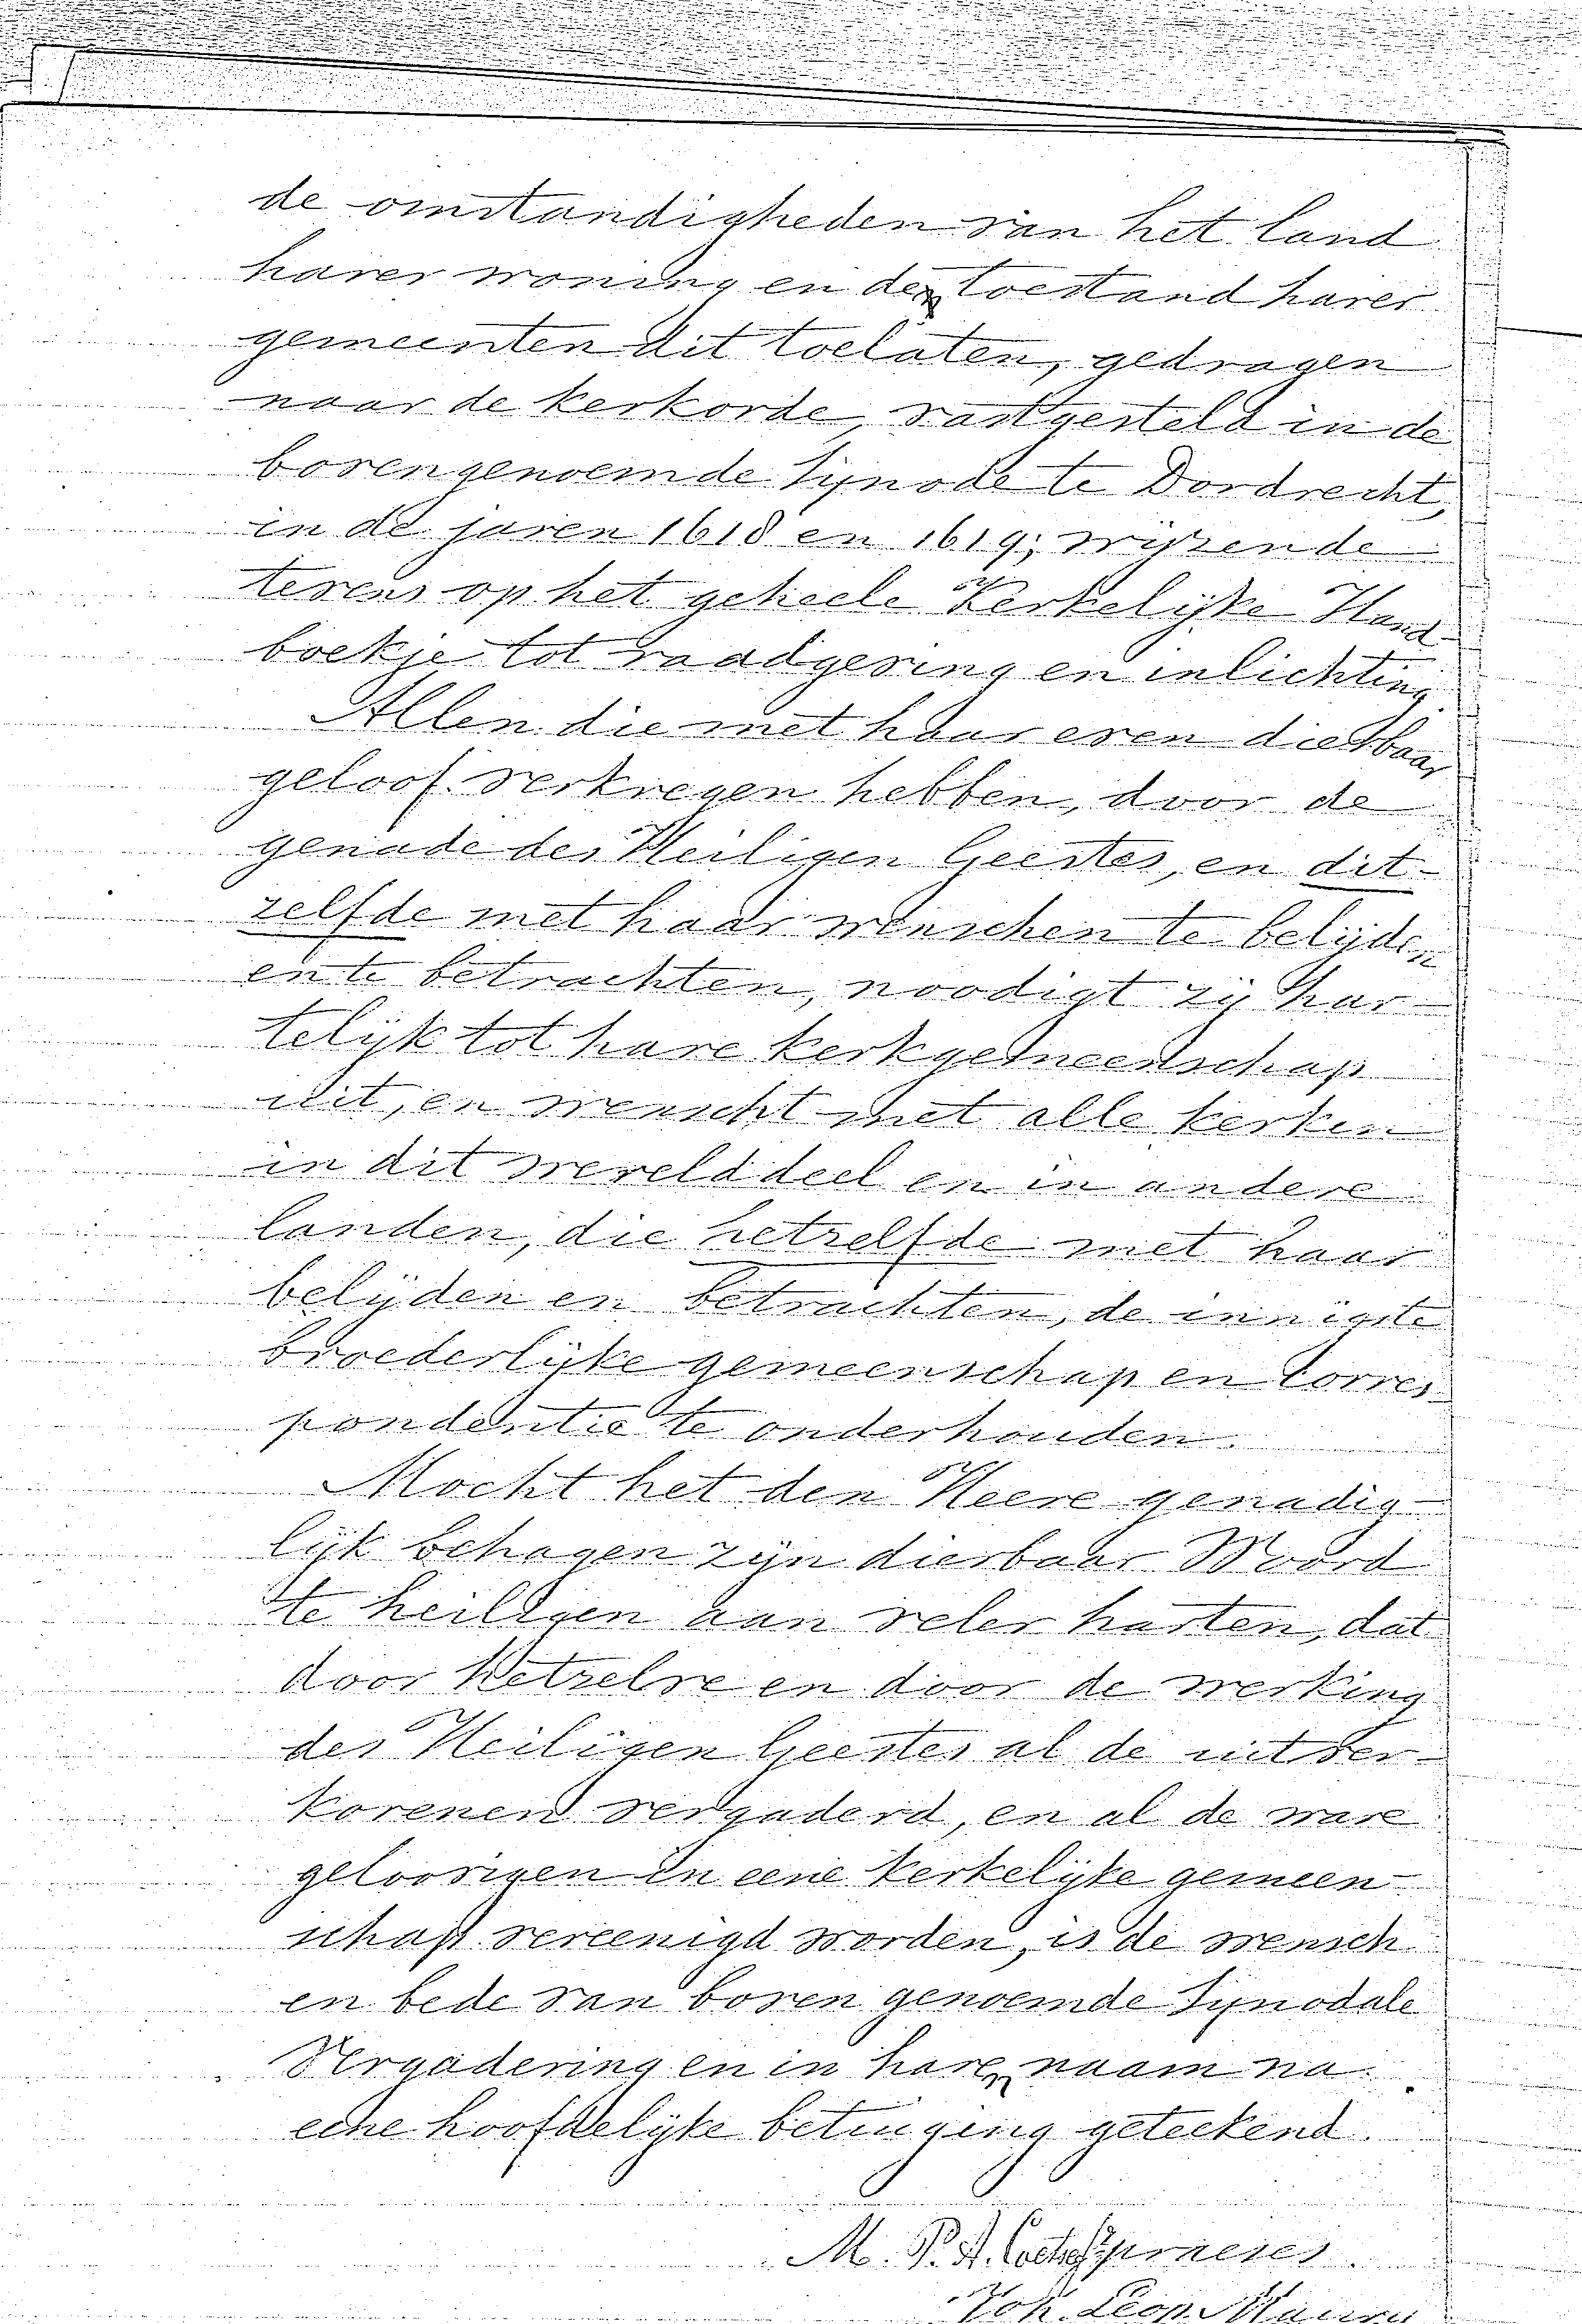 de omstandigheden van het land
harer woning en de toestand harer
gemeenten dit toelaten, gedragen
naar de kerkorde, vastgesteld in de
bovengenoemde Synode te Dordrecht,
in de jaren 1618 en 1619; wijzende
tevens op het geheele Kerkelijke Hand-
boekje tot raadgeving en inlichting.
Allen die met haar even dierbaar
geloof verkregen hebben, door de
genade des Heiligen Geestes, en dit-
zelfde met haar wenschen te belijden
en te betrachten, noodigt zij har-
telijk tot hare kerkgemeenschap
uit, en wenscht met alle kerken
in dit werelddeel en in andere
landen, die hetzelfde met haar
belijden en betrachten, de innigste
broederlijke gemeenschap en Corres-
pondentie te onderhouden.
Mocht het den Heere genadig-
lijk behagen zijn dierbaar Woord
te heiligen aan veler harten, dat
door hetzelve en door de werking
des Heiligen Geestes al de uitver-
korenen vergaderd, en al de ware
geloovigen in eene kerkelijke gemeen-
schap vereenigd worden, is de wensch
en bede van boven genoemde Synodale
Vergadering en in hare naam na
eene hoofdelijke betuiging geteekend.
M. P. A. Coetsee
Joh. Leop. Maury